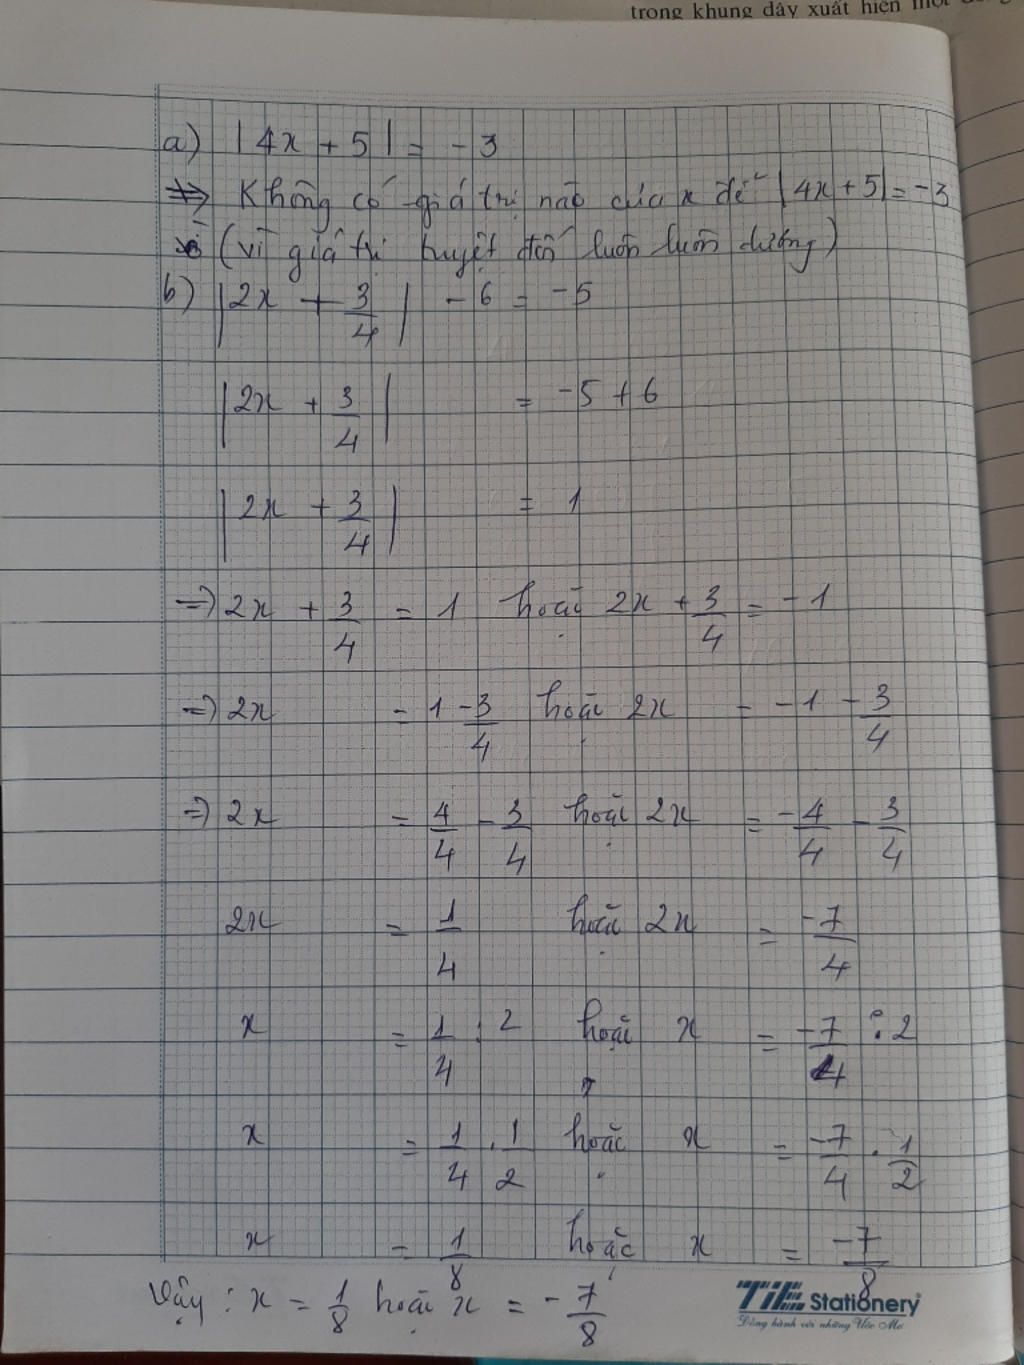 trong khung dây xuất hiện một
a) |4x + 5| = -3
=> Không có giá trị nào của x để |4x+5| = -3
(vì giá trị tuyệt đối luôn luôn dương)
b) |2x + 3/4| - 6 = -5
|2x + 3/4| = -5 + 6
|2x + 3/4| = 1
=> 2x + 3/4 = 1 hoặc 2x + 3/4 = -1
=> 2x = 1 - 3/4 hoặc 2x = -1 - 3/4
=> 2x = 4/4 - 3/4 hoặc 2x = -4/4 - 3/4
2x = 1/4 hoặc 2x = -7/4
x = 1/4 : 2 hoặc x = -7/4 : 2
x = 1/4 . 1/2 hoặc x = -7/4 . 1/2
x = 1/8 hoặc x = -7/8
Vậy : x = 1/8 hoặc x = -7/8
TiE Stationery
Đồng hành với những Ước Mơ